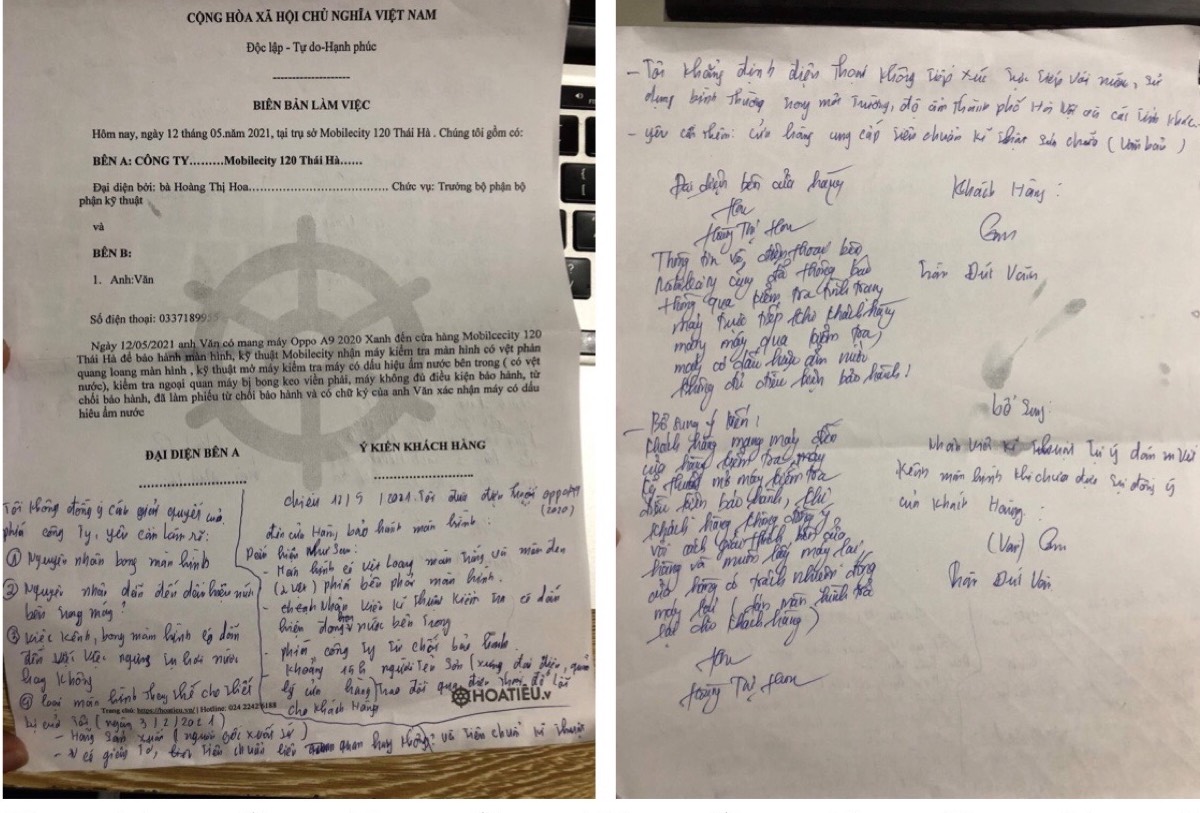 CỘNG HÒA XÃ HỘI CHỦ NGHĨA VIỆT NAM
Độc lập - Tự do-Hạnh phúc
--------------------
BIÊN BẢN LÀM VIỆC
Hôm nay, ngày 12 tháng 05.năm 2021, tại trụ sở Mobilecity 120 Thái Hà . Chúng tôi gồm có:
BÊN A: CÔNG TY.........Mobilecity 120 Thái Hà......
Đại diện bởi: bà Hoàng Thị Hoa.................................... Chức vụ: Trưởng bộ phận bộ
phận kỹ thuật
và
BÊN B:
1. Anh:Văn
Số điện thoại: 0337189955
Ngày 12/05/2021 anh Văn có mang máy Oppo A9 2020 Xanh đến cửa hàng Mobilcecity 120
Thái Hà để bảo hành màn hình, kỹ thuật Mobilecity nhận máy kiểm tra màn hình có vệt phản
quang loang màn hình , kỹ thuật mở máy kiểm tra máy có dấu hiệu ẩm nước bên trong ( có vệt
nước), kiểm tra ngoại quan máy bị bong keo viền phải, máy không đủ điều kiện bảo hành, từ
chối bảo hành, đã làm phiếu từ chối bảo hành và có chữ ký của anh Văn xác nhận máy có dấu
hiêu ẩm nước
ĐẠI DIỆN BÊN A
Tôi không đồng ý cách giải quyết của
phía công ty, yêu cầu làm rõ:
① Nguyên nhân bong màn hình
② Nguyên nhân dẫn đến dấu hiệu nước
bên trong máy?
③ Việc kênh, bong màn hình có dẫn
đến với việc ngưng tụ hơi nước
hay không
④ loại màn hình thay thế cho thiết
bị của tôi (ngày 3/2/2021)
- Hãng sản xuất (nguồn gốc xuất xứ)
- có giấy tờ, tiêu chuẩn liên quan hay không? và tiêu chuẩn kĩ thuật
Ý KIẾN KHÁCH HÀNG
chiều 11/5/2021. Tôi đưa điện thoại oppo A9
(2020)
đến cửa Hàng, bảo hành màn hình:
Biểu hiện như sau:
- Màn hình có vệt Loang màn trắng và màn đen
(2 vệt) phía bên phải màn hình.
- nhân viên kĩ thuật kiểm tra có dấu
hiệu đọng hơi nước bên trong
- phía công ty từ chối bảo hành
- khoảng 15h người tên Sơn (xưng đại diện, quản
lý cửa hàng) trao đổi qua điện thoại đổ lỗi
cho khách Hàng
HOATIEU.v
Trang chủ: https://hoatieu.vn/ | Hotline: 024 2242 6188
- Tôi khẳng định điện thoại không tiếp xúc trực tiếp với nước, sử
dụng bình thường trong môi trường, độ ẩm thành phố Hà Nội và các tỉnh khác.
- yêu cầu thêm: cửa hàng cung cấp tiêu chuẩn kĩ thuật sửa chữa (văn bản)
Đại diện bên cửa hàng
Hoa
Hoàng Thị Hoa
Khách Hàng:
Trần Đức Văn
Thông tin về điện thoại bên
Mobilecity cũng đã thông báo
thông qua kiểm tra tình trạng
máy trực tiếp cho khách hàng
máy qua kiểm tra,
máy có dấu hiệu ẩm nước
không đủ điều kiện bảo hành!
- Bổ sung ý kiến:
khách hàng mang máy đến
cửa hàng kiểm tra máy
kỹ thuật mở máy kiểm tra
điều kiện bảo hành, khi
khách hàng không đồng ý
với cách giải thích bên cửa
hàng và muốn lấy máy lại
cửa hàng có trách nhiệm đóng
máy lại (dán màn hình trả
lại cho khách hàng)
Hoa
Hoàng Thị Hoa
bổ sung:
nhân viên kĩ thuật tự ý dán
kênh màn hình khi chưa được sự đồng ý
của khách Hàng:
(Văn)
Trần Đức Văn